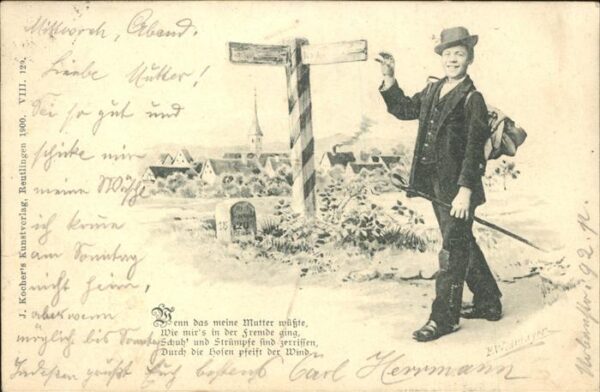 Mittwoch, Abend.
Liebe Mutter!
Sei so gut und
schicke mir
meine Wäsche
ich kome
am Sonntag
nicht heim,
aber wenn
möglich bis Sonntag
Indessen grüßt Euch bestens Carl Herrmann
J. Kocher's Kunstverlag, Reutlingen 1900. VIII. 129.
15
Wenn das meine Mutter wüßte,
Wie mir's in der Fremde ging,
Schuh' und Strümpfe sind zerrissen,
Durch die Hosen pfeift der Wind.